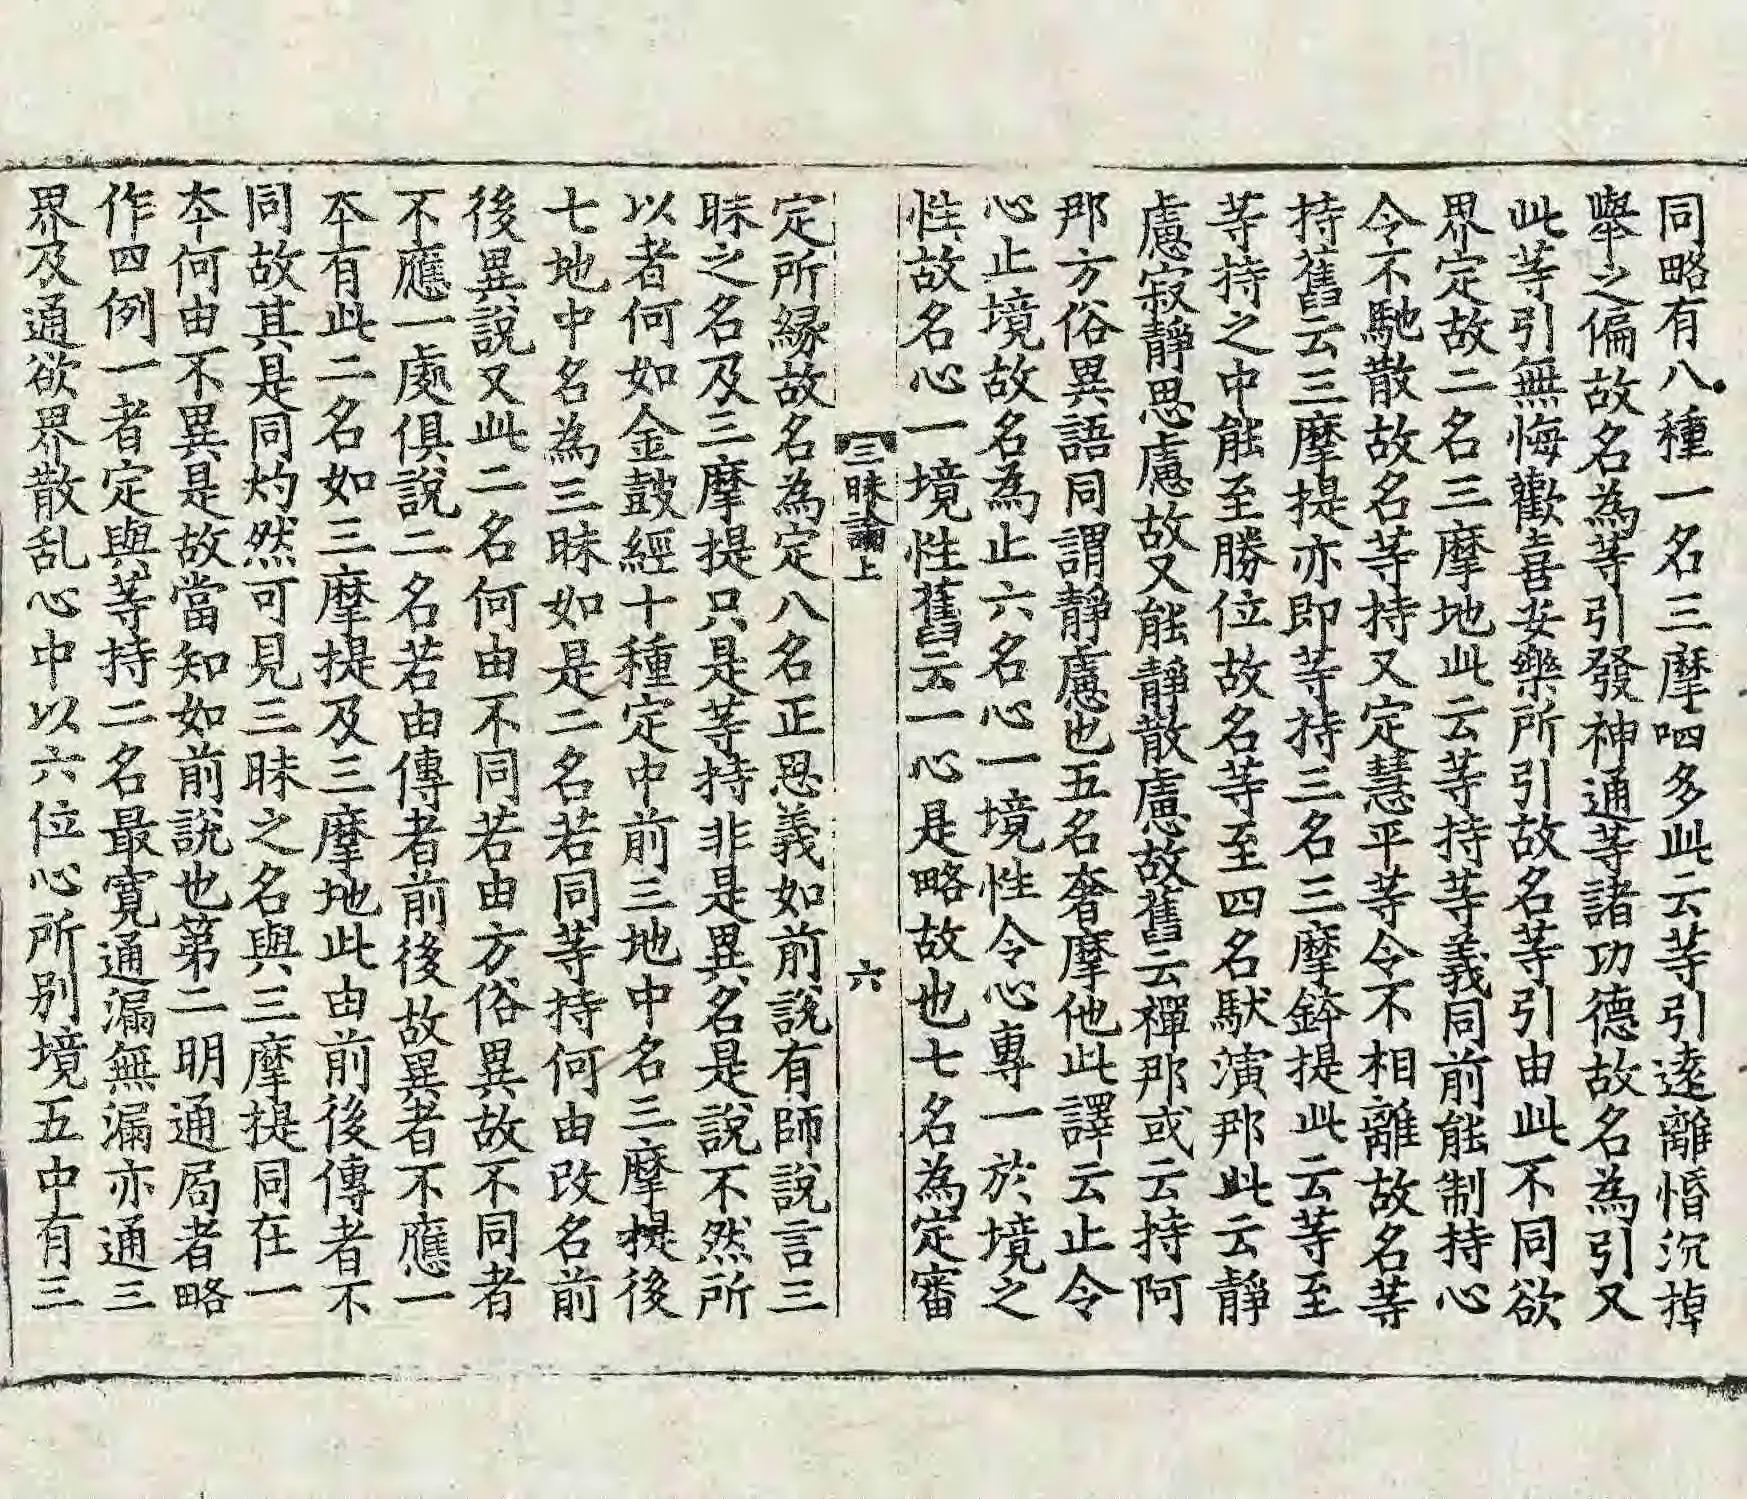 同略有八種一名三摩呬多此云等引遠離惛沉掉
舉之偏故名為等引發神通等諸功德故名為引又
此等引無悔歡喜安樂所引故名等引由此不同欲
界定故二名三摩地此云等持等義同前能制持心
令不馳散故名等持又定慧平等令不相離故名等
持舊云三摩提亦即等持三名三摩鉢提此云等至
等持之中能至勝位故名等至四名馱演那此云靜
慮寂靜思慮故又能靜散慮故舊云禪那或云持阿
那方俗異語同謂靜慮也五名奢摩他此譯云止令
心止境故名為止六名心一境性令心專一於境之
性故名心一境性舊云一心是略故也七名為定審
三昧論上
六
定所緣故名為定八名正思義如前說有師說言三
昧之名及三摩提只是等持非是異名是說不然所
以者何如金鼓經十種定中前三地中名三摩提後
七地中名為三昧如是二名若同等持何由改名前
後異說又此二名何由不同若由方俗異故不同者
不應一處俱說二名若由傳者前後故異者不應一
本有此二名如三摩提及三摩地此由前後傳者不
同故其是同灼然可見三昧之名與三摩提同在一
本何由不異是故當知如前說也第二明通局者略
作四例一者定與等持二名最寬通漏無漏亦通三
界及通欲界散乱心中以六位心所別境五中有三